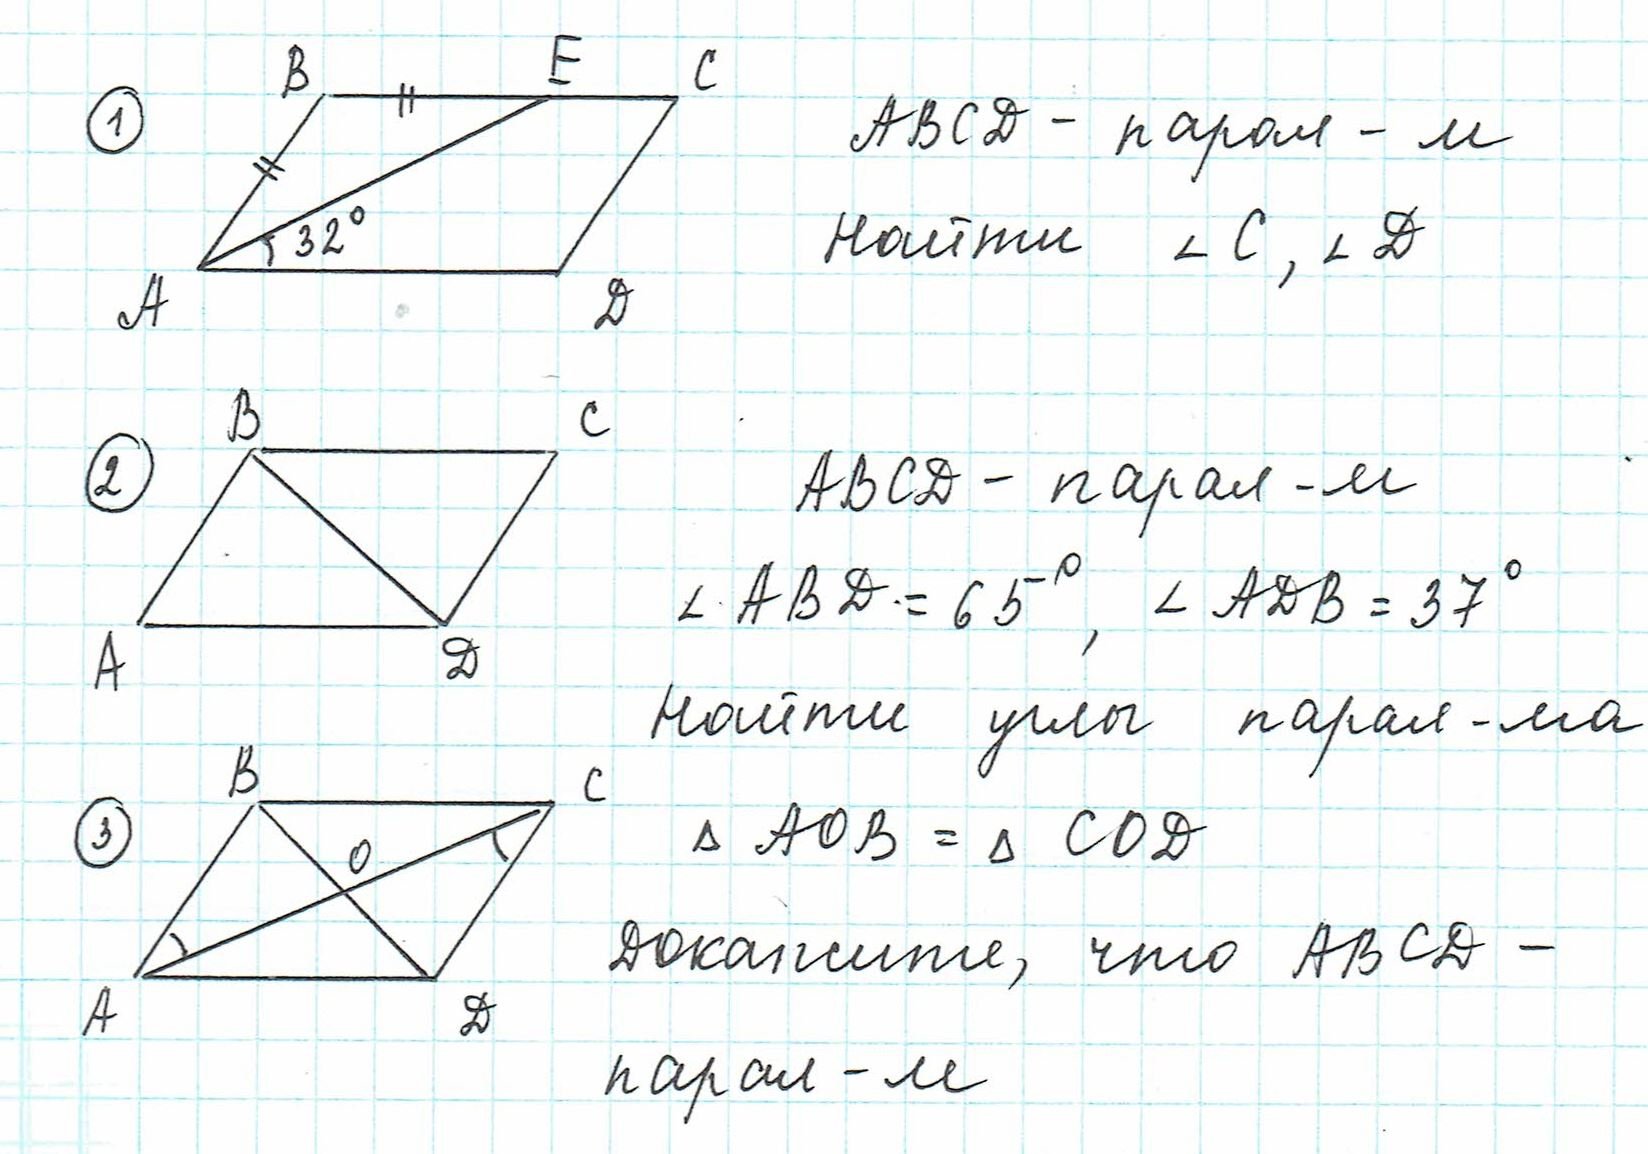 B E C
1
ABCD - парал-м
Найти ∠C, ∠D
32°
A D
B C
2
ABCD - парал-м
∠ABD = 65°, ∠ADB = 37°
A D
Найти углы парал-ма
B C
3
△ AOB = △ COD
O
Докажите, что ABCD -
A D
парал-м